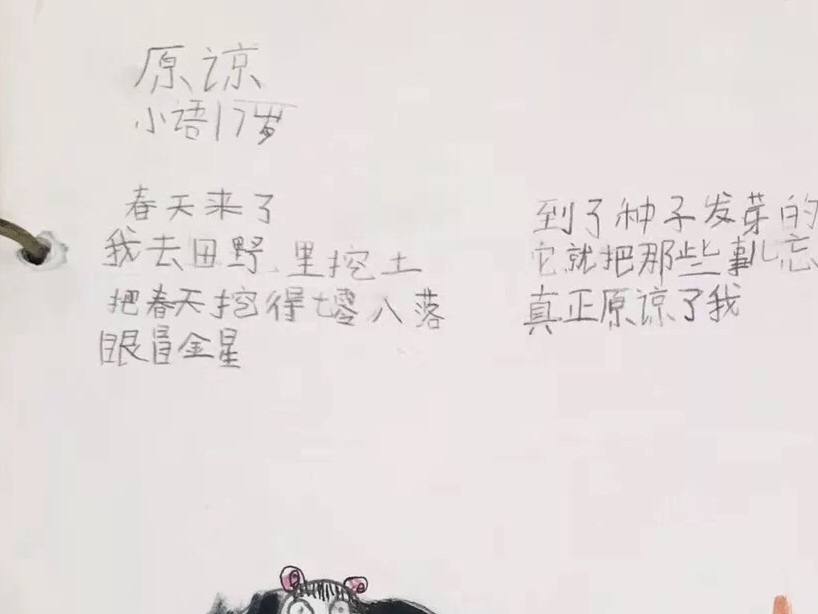 原谅
小语17岁
春天来了
我去田野里挖土
把春天挖得七零八落
眼冒金星
到了种子发芽的
它就把那些事儿忘
真正原谅了我